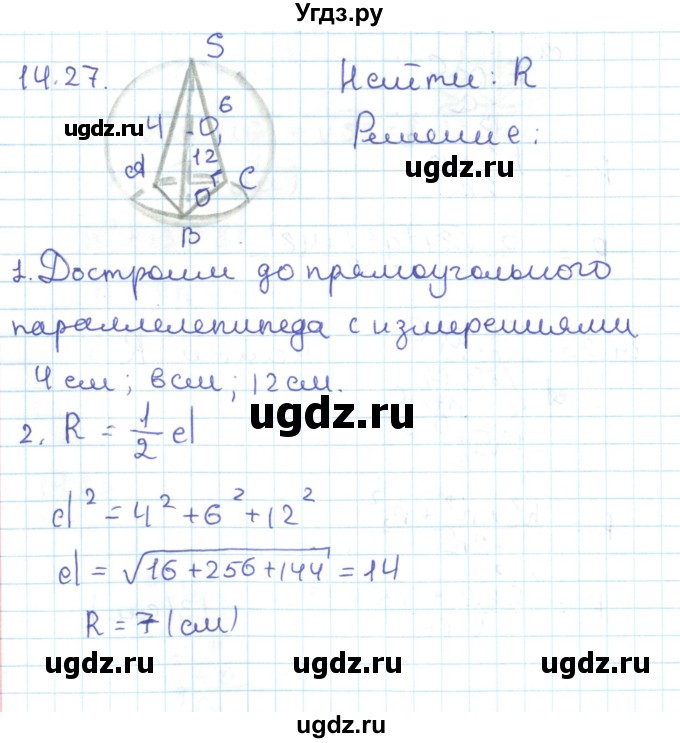 Угдз.ру
14.27.
S
Найти: R
4
6
O₁
ugdz.ru
Решение:
ugdz.ru
A
12
C
O
B
1. Достроим до прямоугольного
параллелепипеда с измерениями
4 см; 6 см; 12 см.
ugdz.ru
2. R = 1/2 d
d² = 4² + 6² + 12²
d = √16 + 256 + 144 = 14
R = 7 (см)
ugdz.ru
ugdz.ru
ugdz.ru